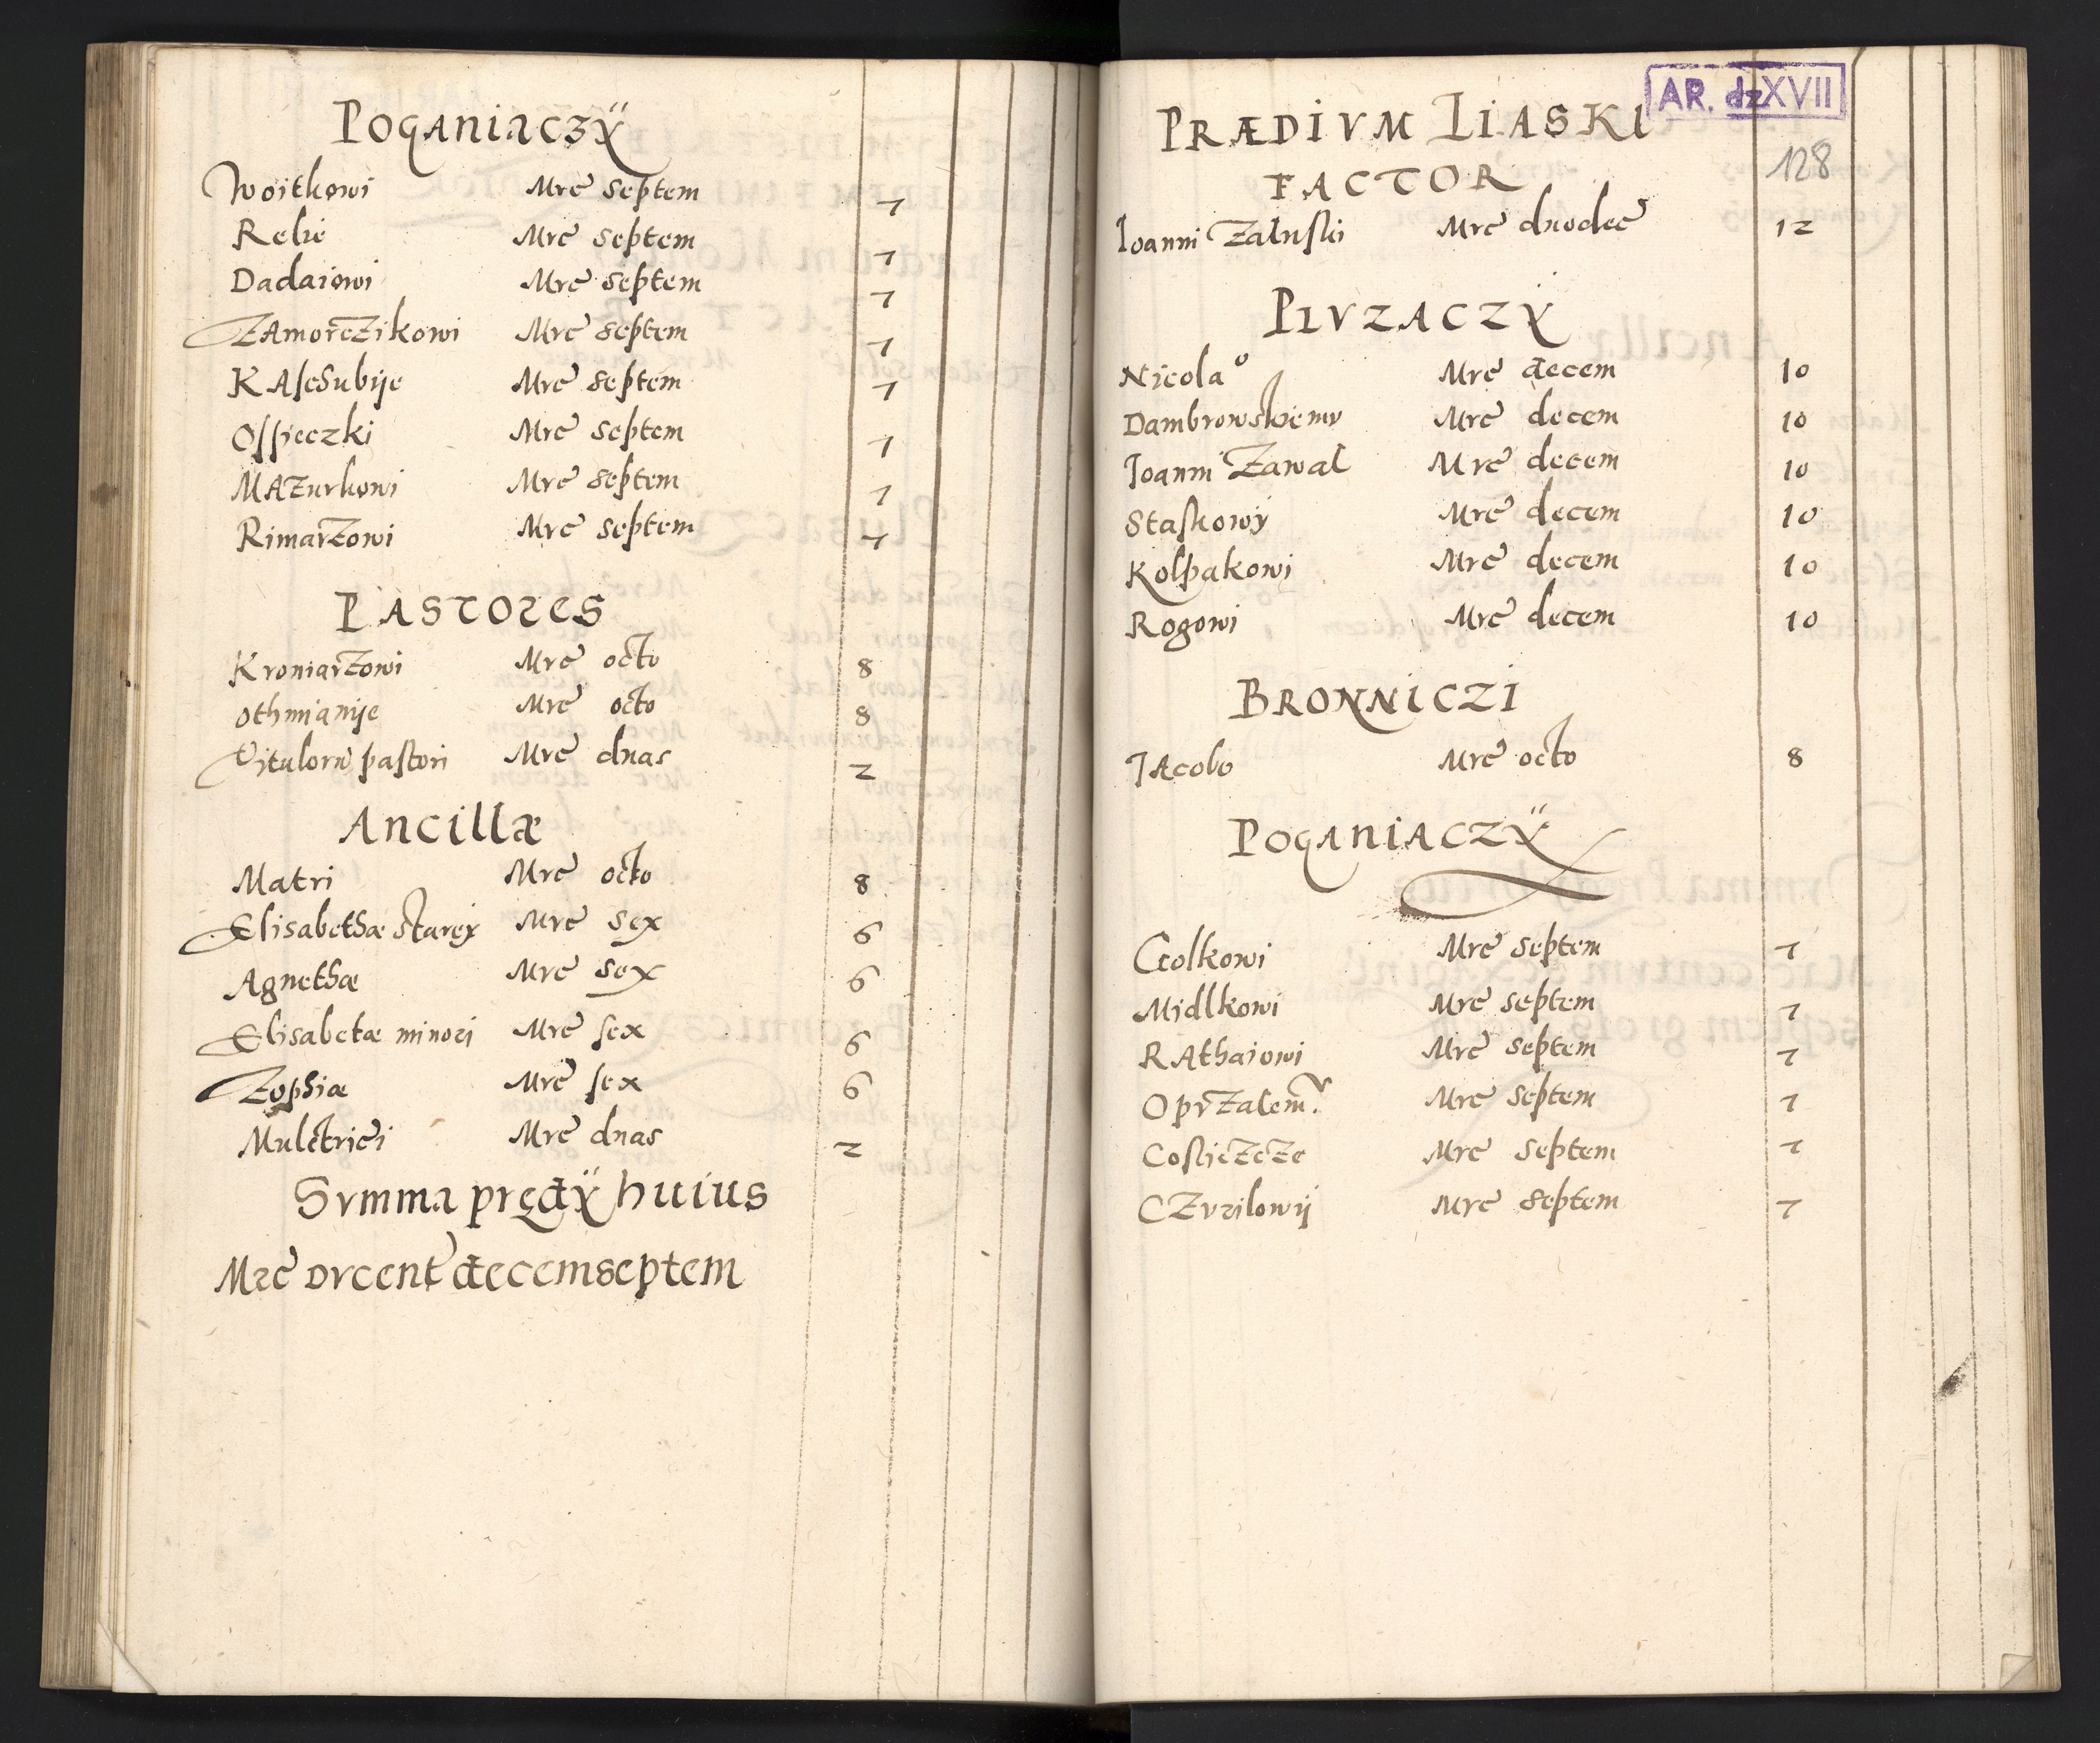 Poganiaczÿ
Woitkowi Mrc̃ septem 7
Relie Mrc̃ septem 7
Dadaiowi Mrc̃ septem 7
ZAmorcZikowi Mrc̃ septem 7
KAſcSubije Mrc̃ septem 7
Oſſieczki Mrc̃ septem 7
MAZurkowi Mrc̃ septem 7
RimarZowi Mrc̃ septem 7
PASTORES
KroniarZowi Mrc̃ octo 8
Othmianije Mrc̃ octo 8
Vitulorũ paſtori Mrc̃ duas 2
Ancillæ
Matri Mrc̃ octo 8
Elisabethæ Stareÿ Mrc̃ sex 6
Agnethæ Mrc̃ sex 6
Elisabetæ minori Mrc̃ ſex 6
Zophiæ Mrc̃ ſex 6
Mulctrici Mrc̃ duas 2
Svmma prędÿ huius
Mrc̃ dvcent decemseptem
PRÆDIVM LIASKI
AR. dz XVII
128
FACTOR
Ioanni Załuſki Mrc̃ duodec̃ 12
PLVZACZẎ
Nicolaº Mrc̃ decem 10
Dambrowskiemv Mrc̃ decem 10
Ioanni Zawał Mrc̃ decem 10
Staſkowÿ Mrc̃ decem 10
Kolpakowi Mrc̃ decem 10
Rogowi Mrc̃ decem 10
BRONNICZI
JAcobo Mrc̃ octo 8
POGANIACZŸ
Golkowi Mrc̃ septem 7
Midlkowi Mrc̃ septem 7
RAthaiowi Mrc̃ septem 7
OpvZałemᵛ Mrc̃ septem 7
CoſticZcZe Mrc̃ septem 7
CZvrilowij Mrc̃ septem 7